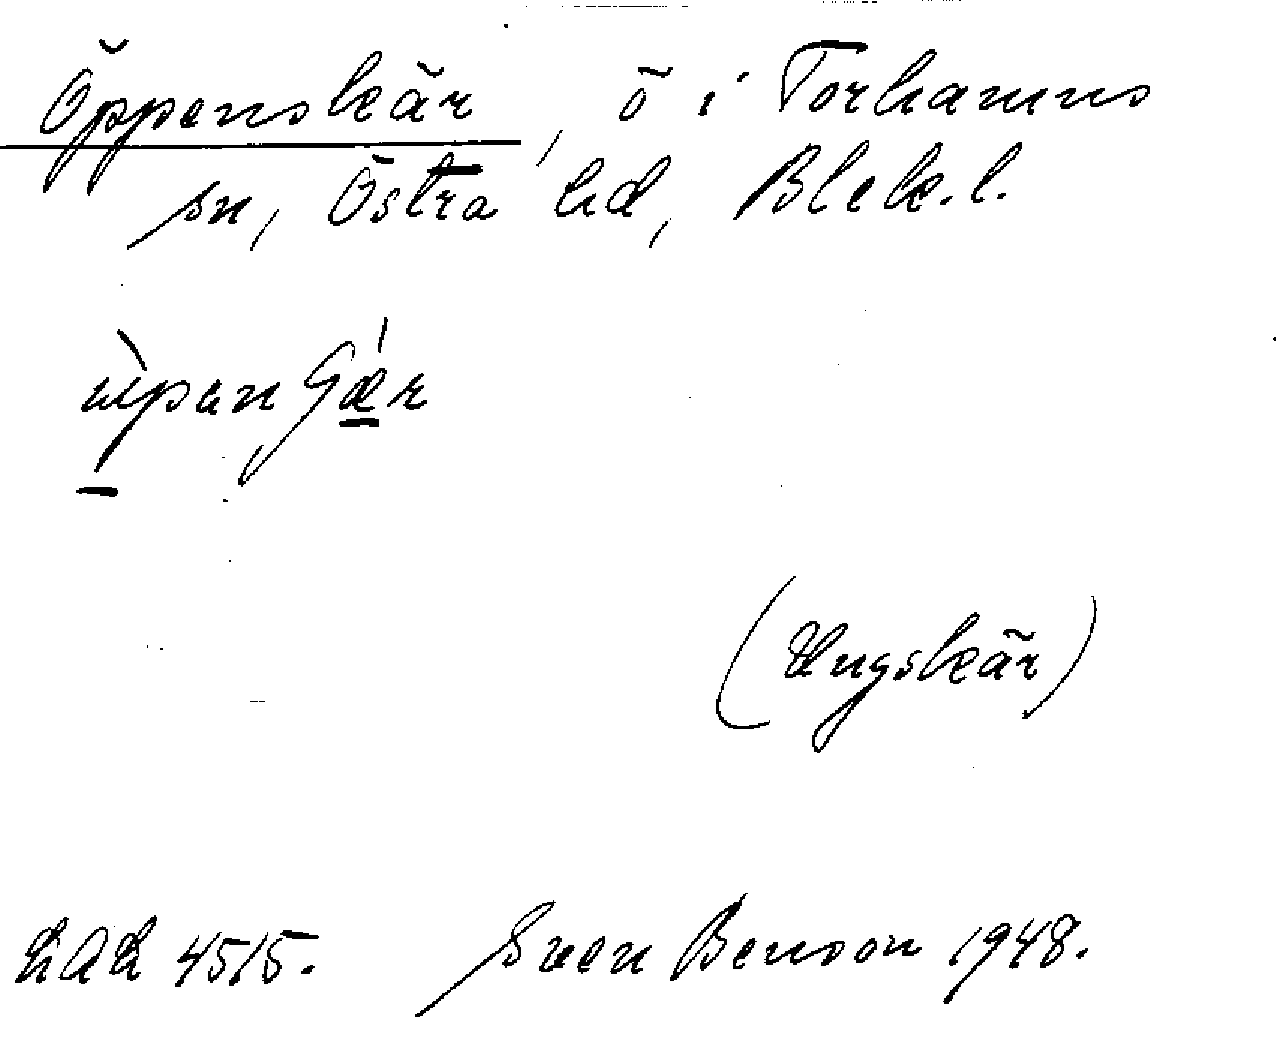 Öppenskär, ö i Torhamns
sn, Östra hd, Blek. l.
(Ungskär)
LAL 4515. Sven Benson 1948.